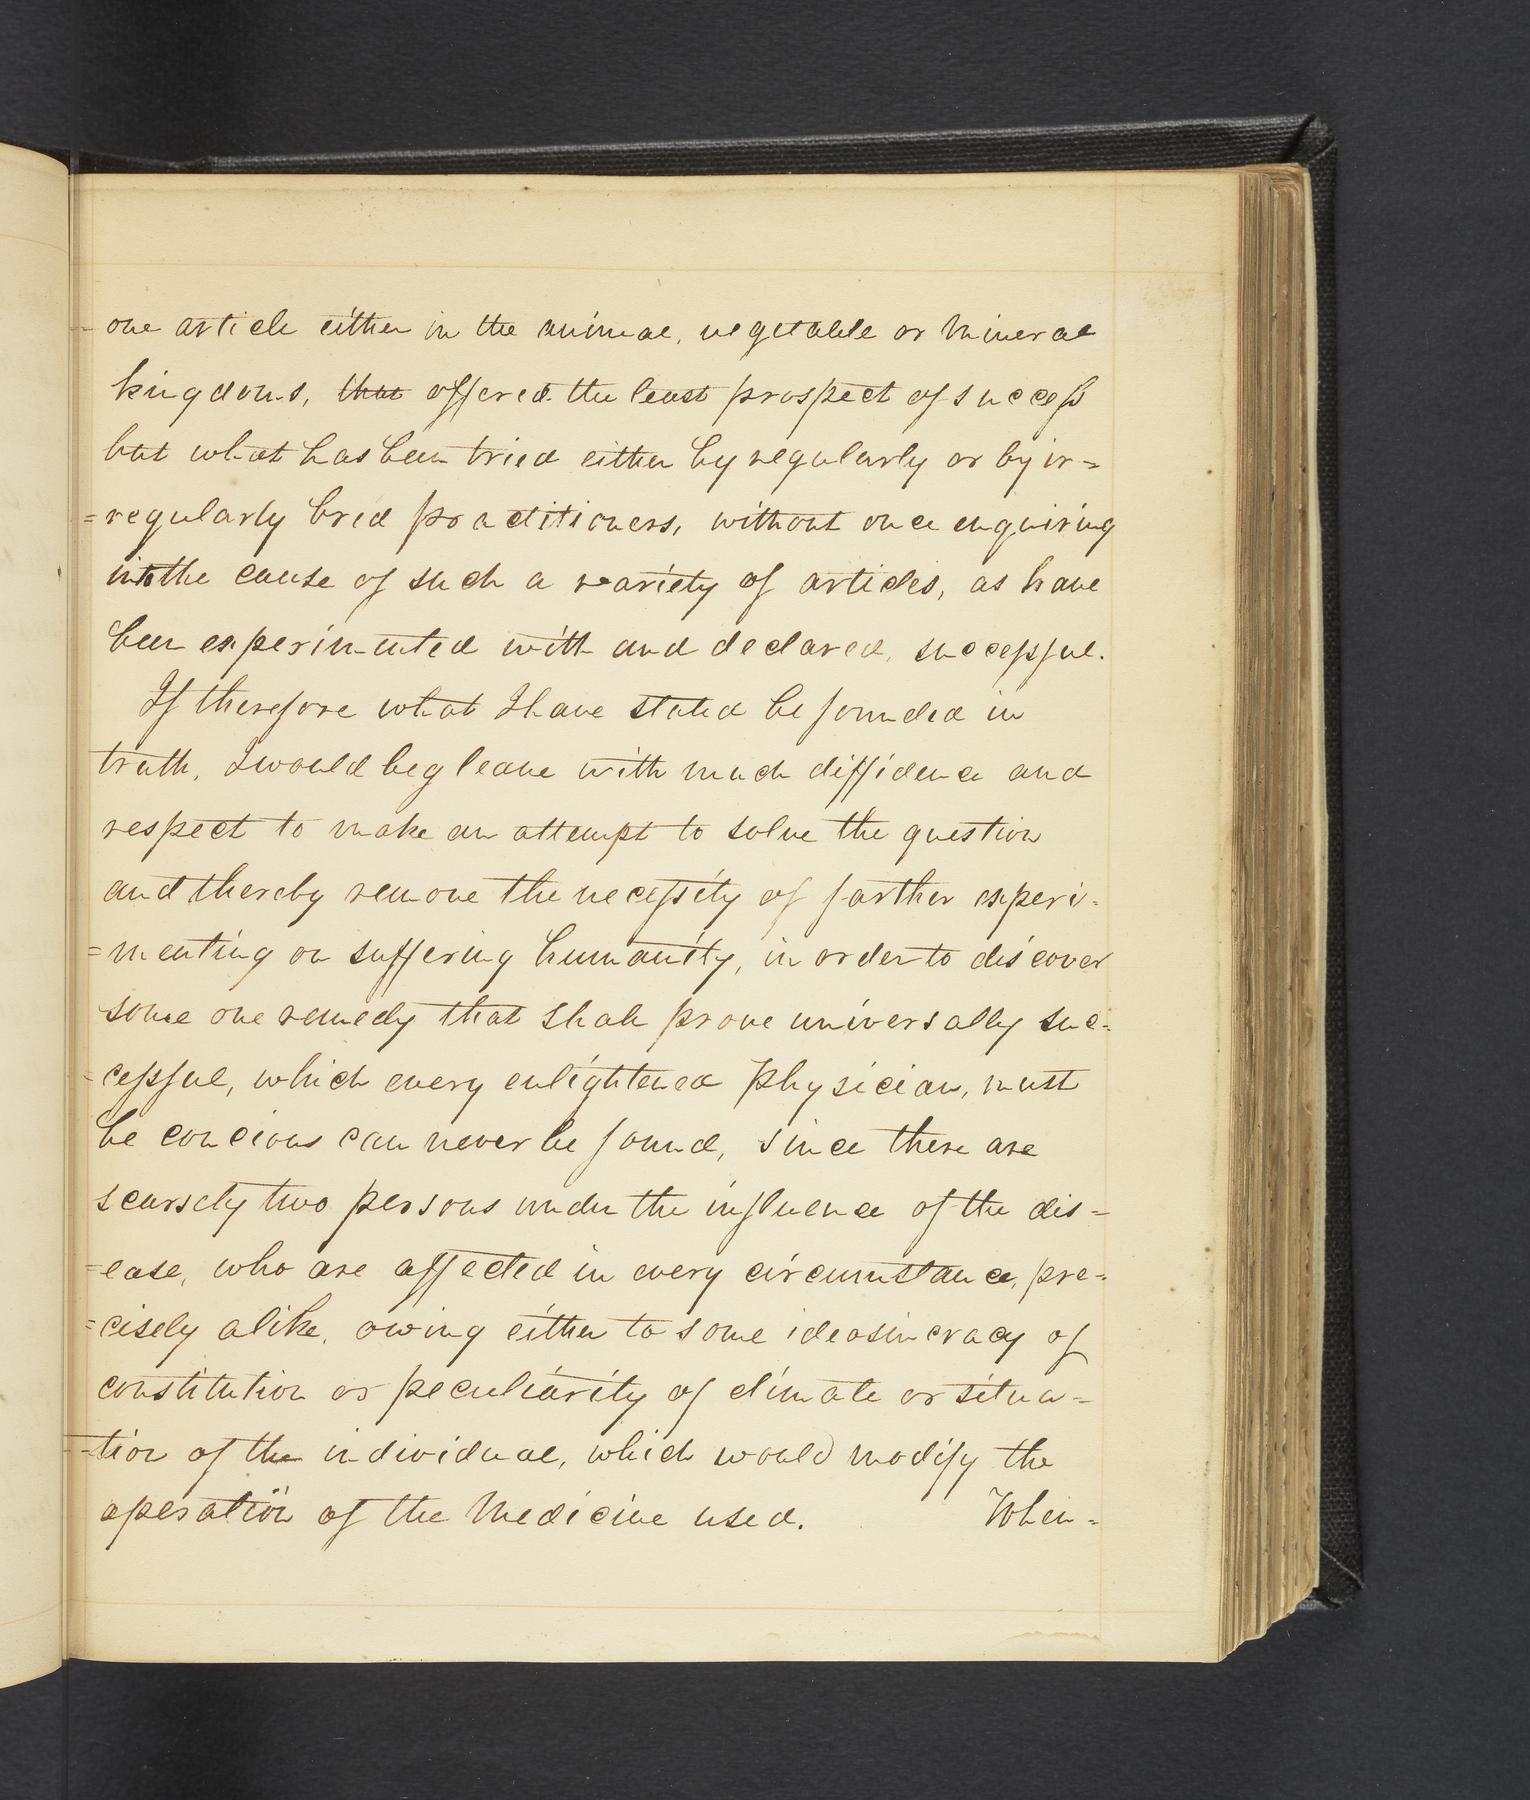 one article either in the animal, vegetable or Mineral
kingdoms, that offered the least prospect of success
but what has been tried either by regularly or by ir=
=regularly bred practitioners, without once enquiring
into the cause of such a variety of articles, as have
been experimented with and declared, successful.
If therefore what I have stated be founded in
truth, I would beg leave with much diffidence and
respect to make an attempt to solve the question
and thereby remove the necessity of farther experi=
=menting on suffering humanity, in order to discover
some one remedy that shall prove universally suc=
=cessful, which every enlightened Physician, must
be concious can never be found, since there are
scarsely two persons under the influence of the dis=
=ease, who are affected in every circumstance, pre=
=cisely alike, owing either to some ideosincracy of
constitution or peculiarity of climate or situa=
=tion of the individual, which would modify the
operation of the Medicine used. When=